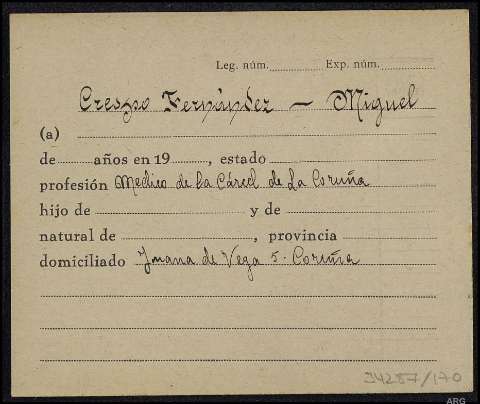 Leg. núm. Exp. núm.
Crespo Fernández — Miguel
(a)
de años en 19 , estado
profesión Medico de la Cárcel de La Coruña
hijo de y de
natural de , provincia
domiciliado Juana de Vega 5 - Coruña
34287/170
ARG